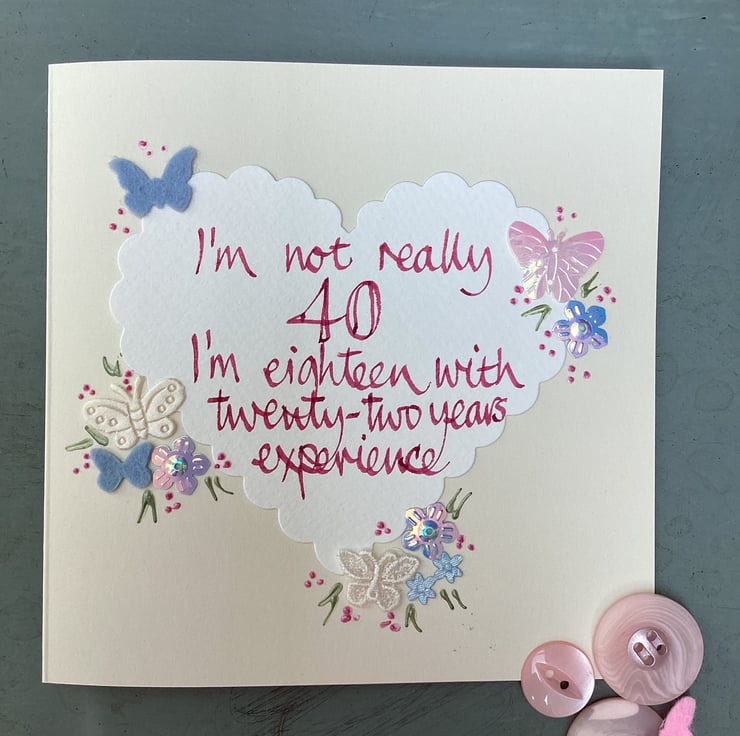 I'm not really
40
I'm eighteen with
twenty-two years
experience